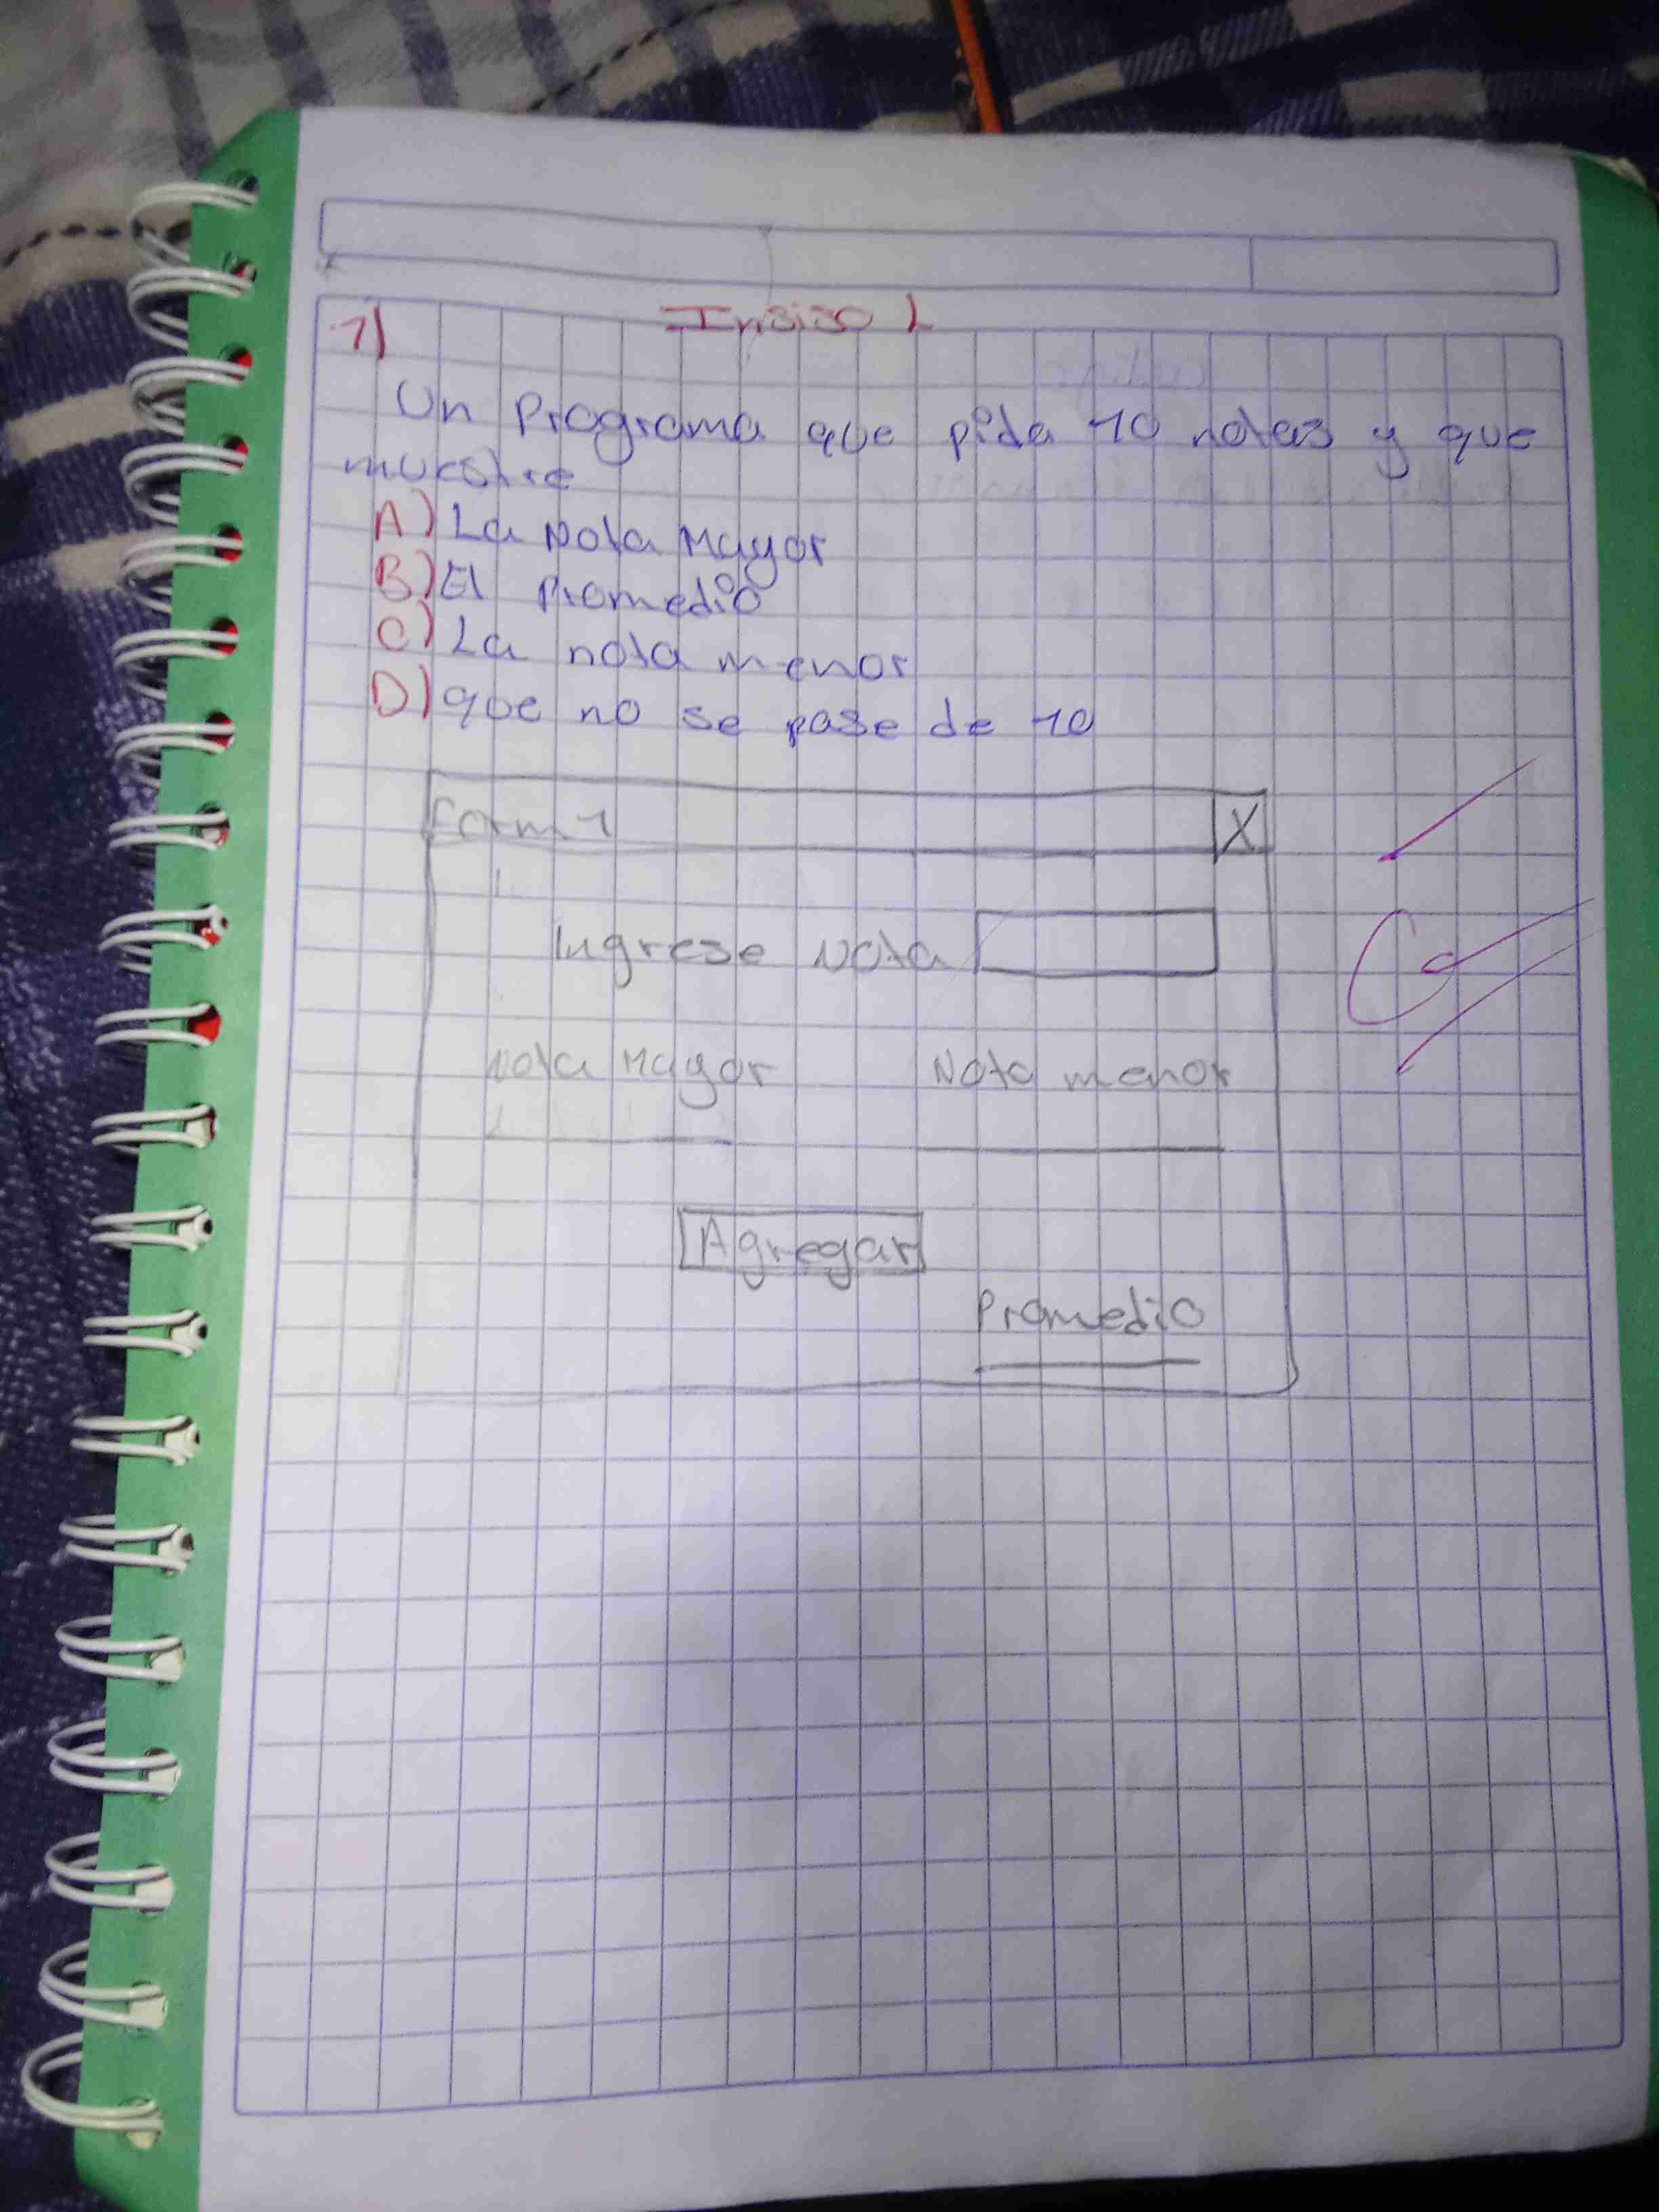 Insiso 1
1)
Un Programa que pida 10 notas y que
muestre
A) La Nota Mayor
B) El Promedio
C) La nota menor
D) que no se pase de 10
Form 1 X
Ingrese Nota
Nota Mayor Nota menor
Agregar
Promedio